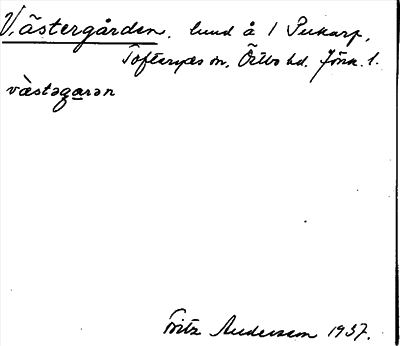 Västergården, lund å 1 Pukarp,
Tofteryds sn, Östbo hd. Jönk. l.
vàstəgarən
Fritz Andersson 1937.